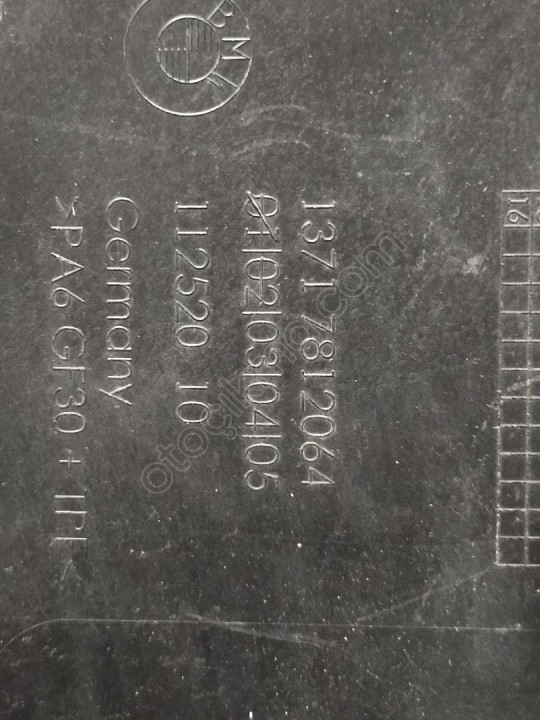 BMW
1371 7812064
01|02|03|04|05
112520 10
Germany
>PA6 GF30 + IPF<
16
otoçikma.com